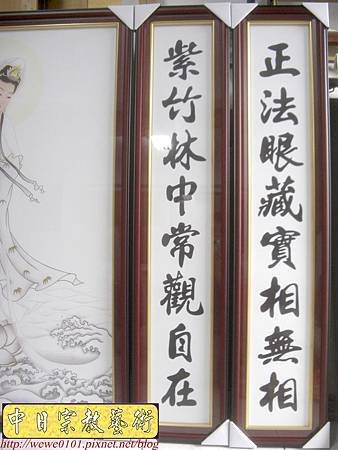 正法眼藏實相無相
紫竹林中常觀自在
中日宗教藝術
http://wewe0101.pixnet.net/blog